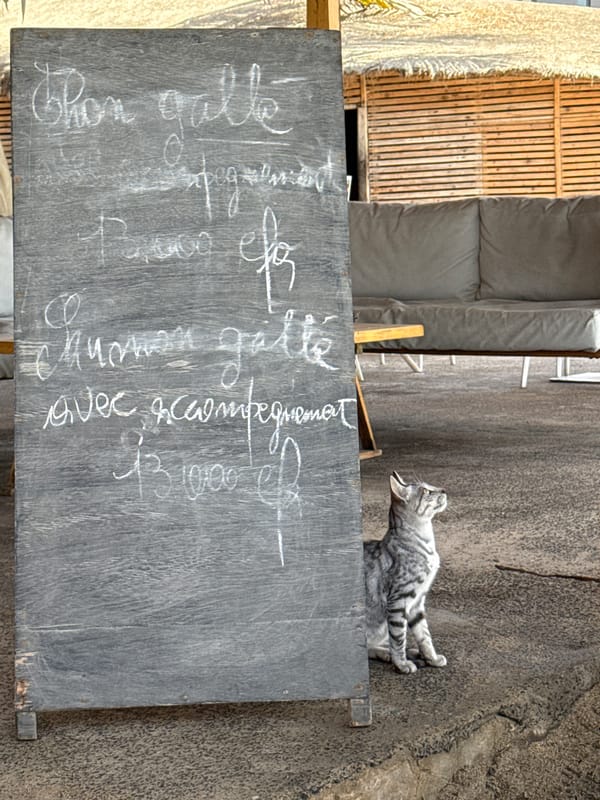 Thon gallé
avec accompegnement
13000 cfa
Chumon gallé
avec accompegnement
13000 cfa